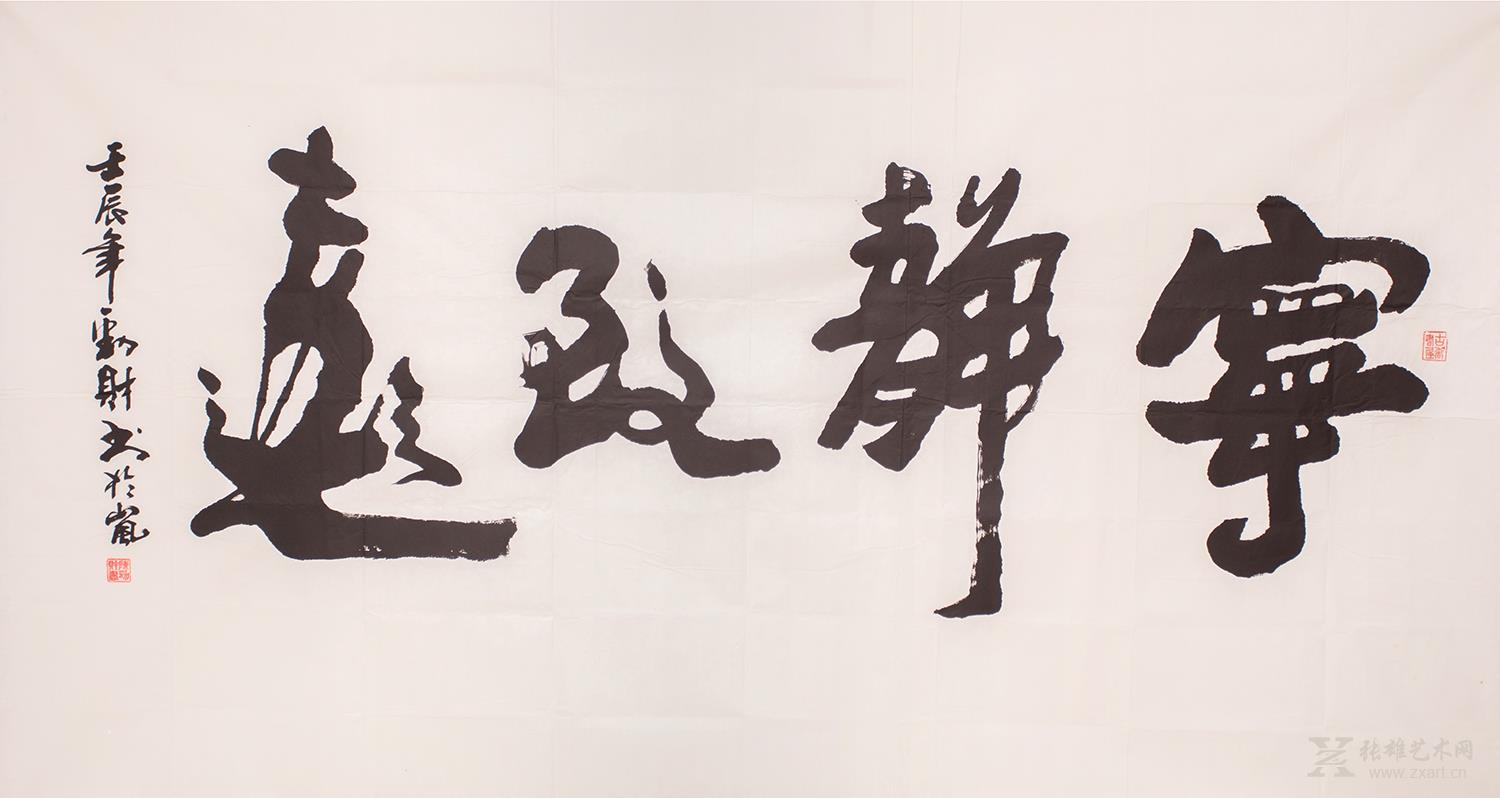 寧靜致遠
壬辰年勁財书於嵐
张雄艺术网
www.zxart.cn